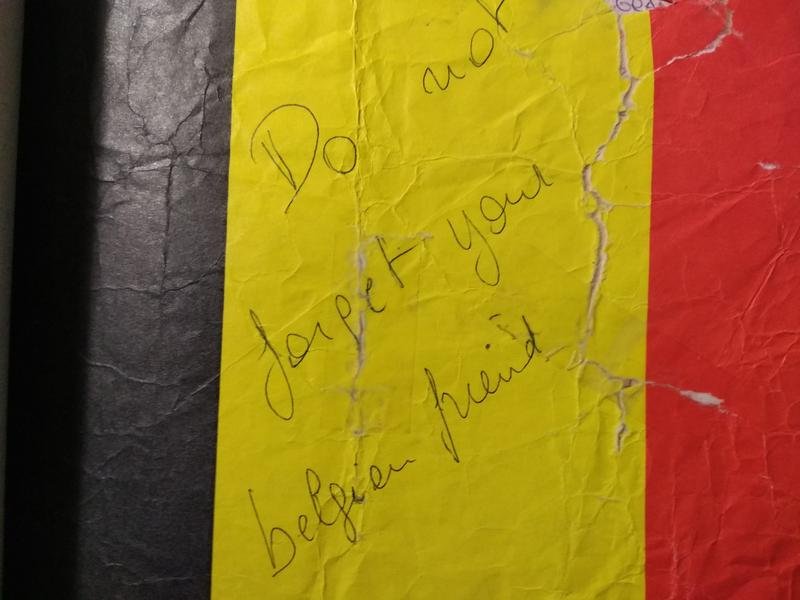 Do not
forget your
belgien friend